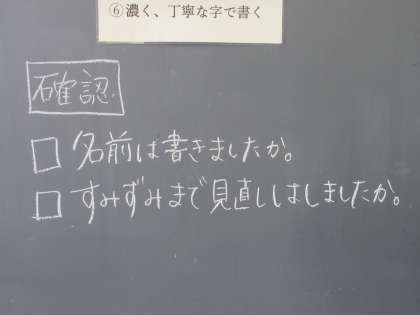 ⑥濃く、丁寧な字で書く
確認
□ 名前は書きましたか。
□ すみずみまで見直しはしましたか。